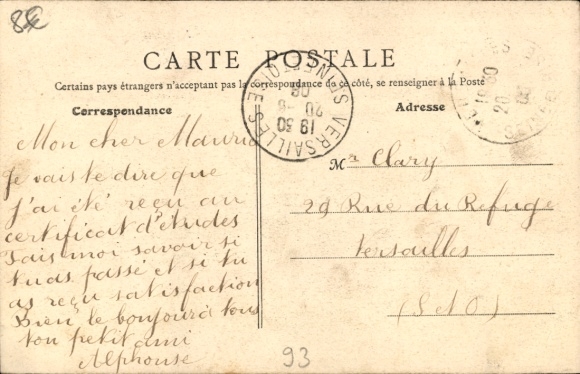 8
CARTE POSTALE
Certains pays étrangers n'acceptant pas la correspondance de ce côté, se renseigner à la Poste
Correspondance
Adresse
VERSAILLES
SEINE ET OISE
19 30
20 -8
06
Mon cher Mauric
Je vais te dire que
j'ai été reçu au
certificat d'études
Fais moi savoir si
tu as passé et si tu
as reçu satisfaction
Bien le bonjour à tous
ton petit ami
Alphonse
Mr Clary
29 Rue du Refuge
Versailles
(S et O)
93